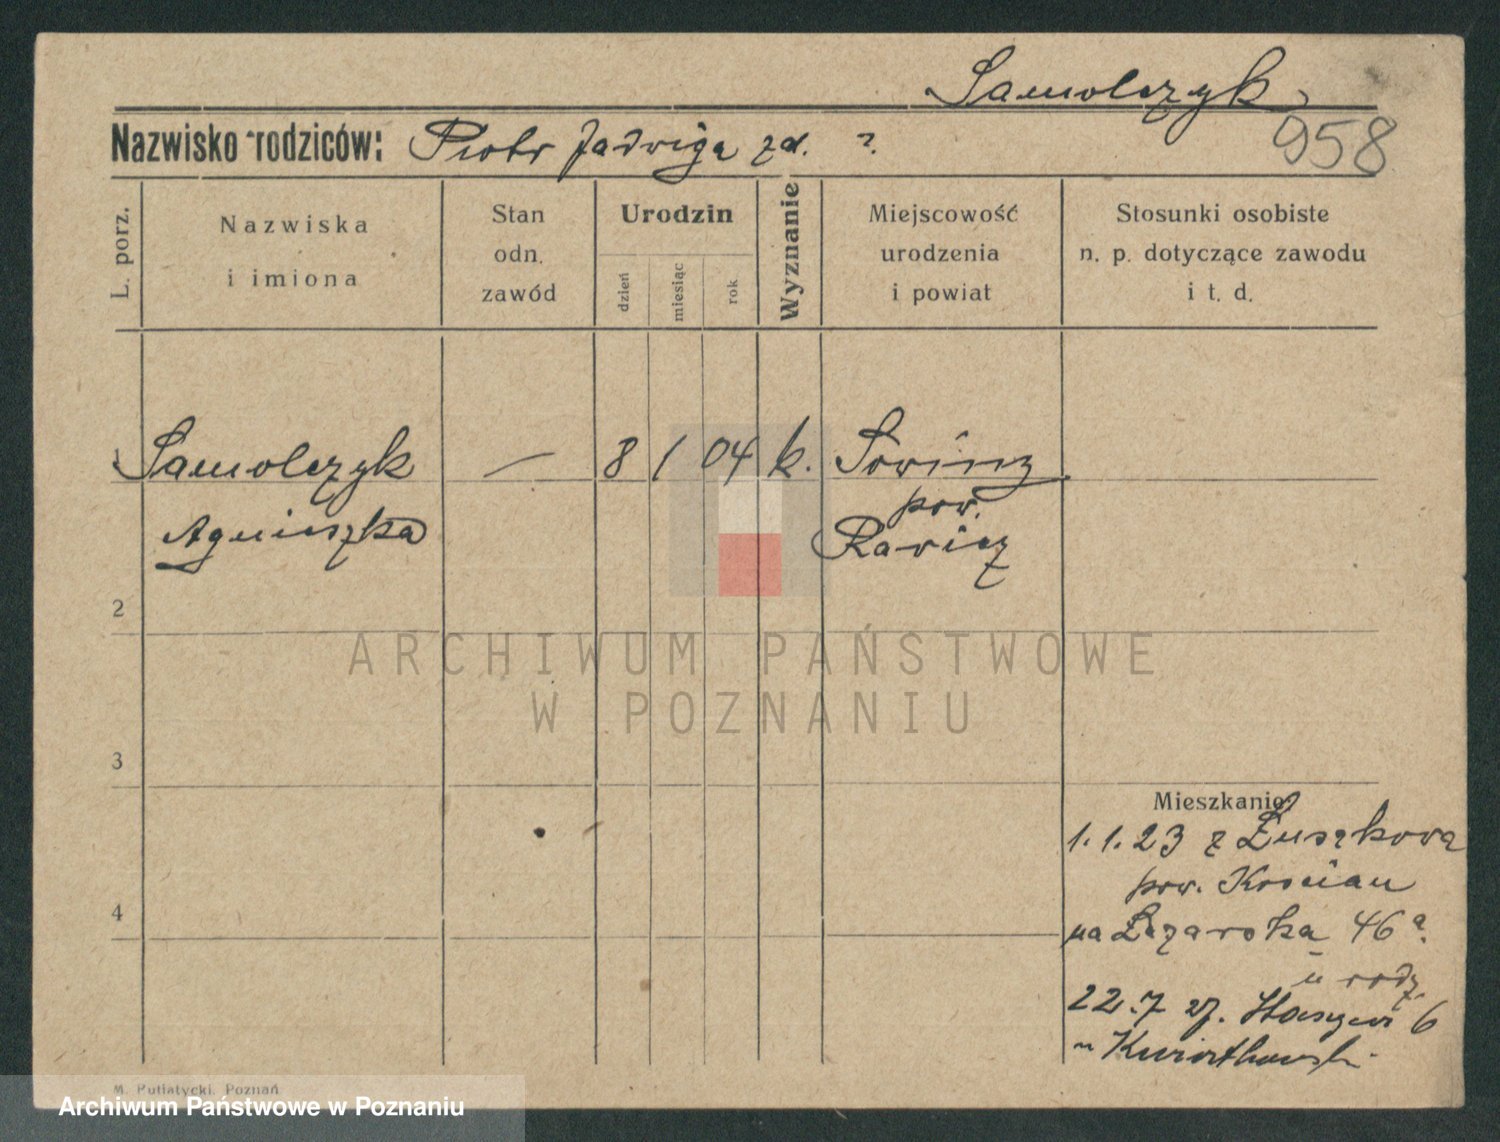 Samolczyk
Nazwisko rodziców: Piotr Jadwiga zd. ?.
958
L. porz.
Nazwiska
i imiona
Stan
odn.
zawód
Urodzin
dzień
miesiąc
rok
Wyznanie
Miejscowość
urodzenia
i powiat
Stosunki osobiste
n. p. dotyczące zawodu
i t. d.
1 Samolczyk — 8 1 04 k. Sowiny
Agnieszka
pow.
Rawicz
2
ARCHIWUM PAŃSTWOWE
W POZNANIU
3
Mieszkanie:
1.1.23 z Łuszkowa
pow. Kościan
4
na Łazarska 46a.
u rodz.
22.7 6
u
M. Putiatycki, Poznań
Archiwum Państwowe w Poznaniu